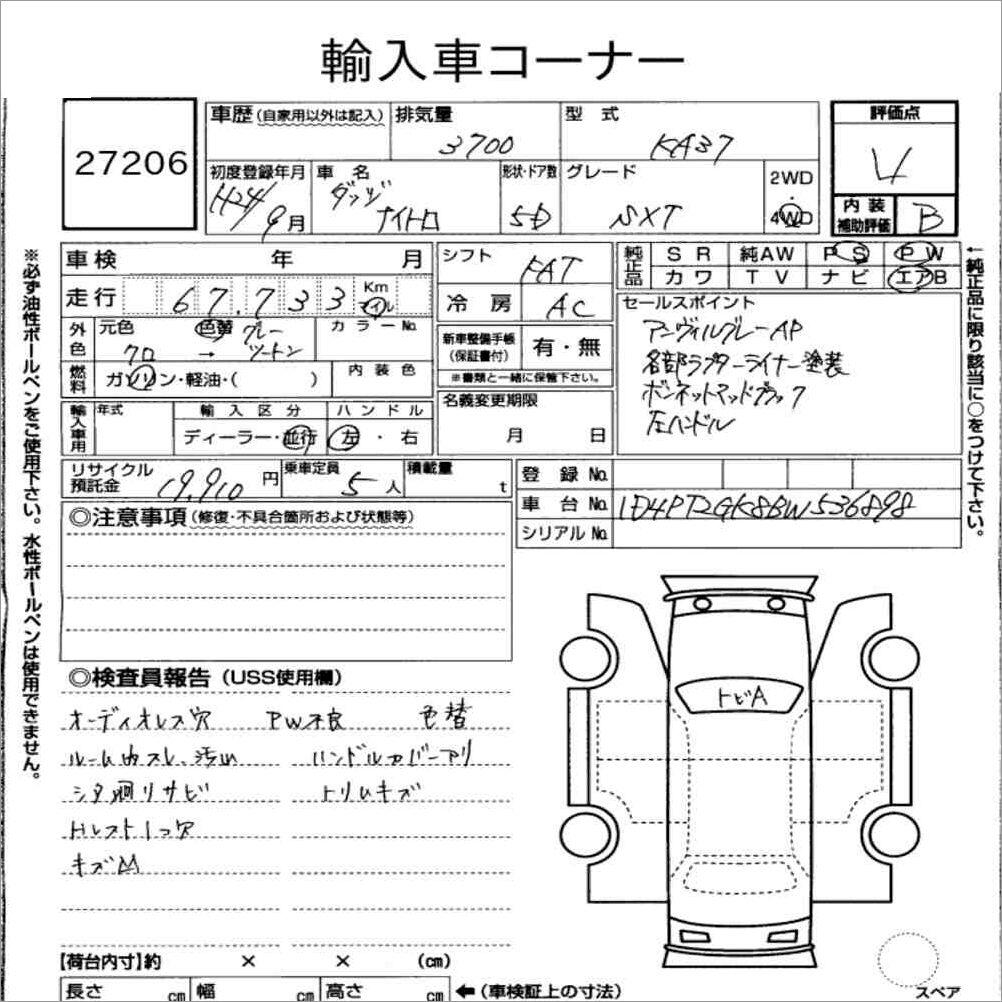 輸入車コーナー
27206
車歴(自家用以外は記入)
排気量
3700
型式
KA37
評価点
4
初度登録年月
H24/9月
車名
ダッヂ
ナイトロ
形状・ドア数
5D
グレード
SXT
2WD
・
4WD
内装
補助評価
B
車検 年 月
走行 67,733 Km マイル
外色
元色
クロ
→
色替 グレー
ツートン
カラーNo.
燃料
ガソリン・軽油・( )
内装色
輸入車用
年式
輸入区分
ディーラー・並行
ハンドル
左・右
シフト
FAT
冷房
AC
新車整備手帳
(保証書付)
有・無
※書類と一緒に保管下さい。
名義変更期限
月 日
純正品
SR 純AW PS PW
カワ TV ナビ エアB
セールスポイント
アンヴィルグレーAP
各部ラプターライナー塗装
ボンネットマッドブラック
左ハンドル
リサイクル
預託金
19,910円
乗車定員
5人
積載量
t
登録No.
車台No.
1D4PT2GK8BW536898
シリアルNo.
◎注意事項(修復・不具合箇所および状態等)
◎検査員報告(USS使用欄)
オーディオレス穴 PW不良 色替
ルーム内スレ、汚れ ハンドルカバーアリ
シタ廻リサビ トリムキズ
Hレスト1ツ穴
キズ凹
トビA
【荷台内寸】約 × × (cm)
長さ cm 幅 cm 高さ cm
←(車検証上の寸法)
スペア
※必ず油性ボールペンをご使用下さい。水性ボールペンは使用できません。
←純正品に限り該当に○をつけて下さい。